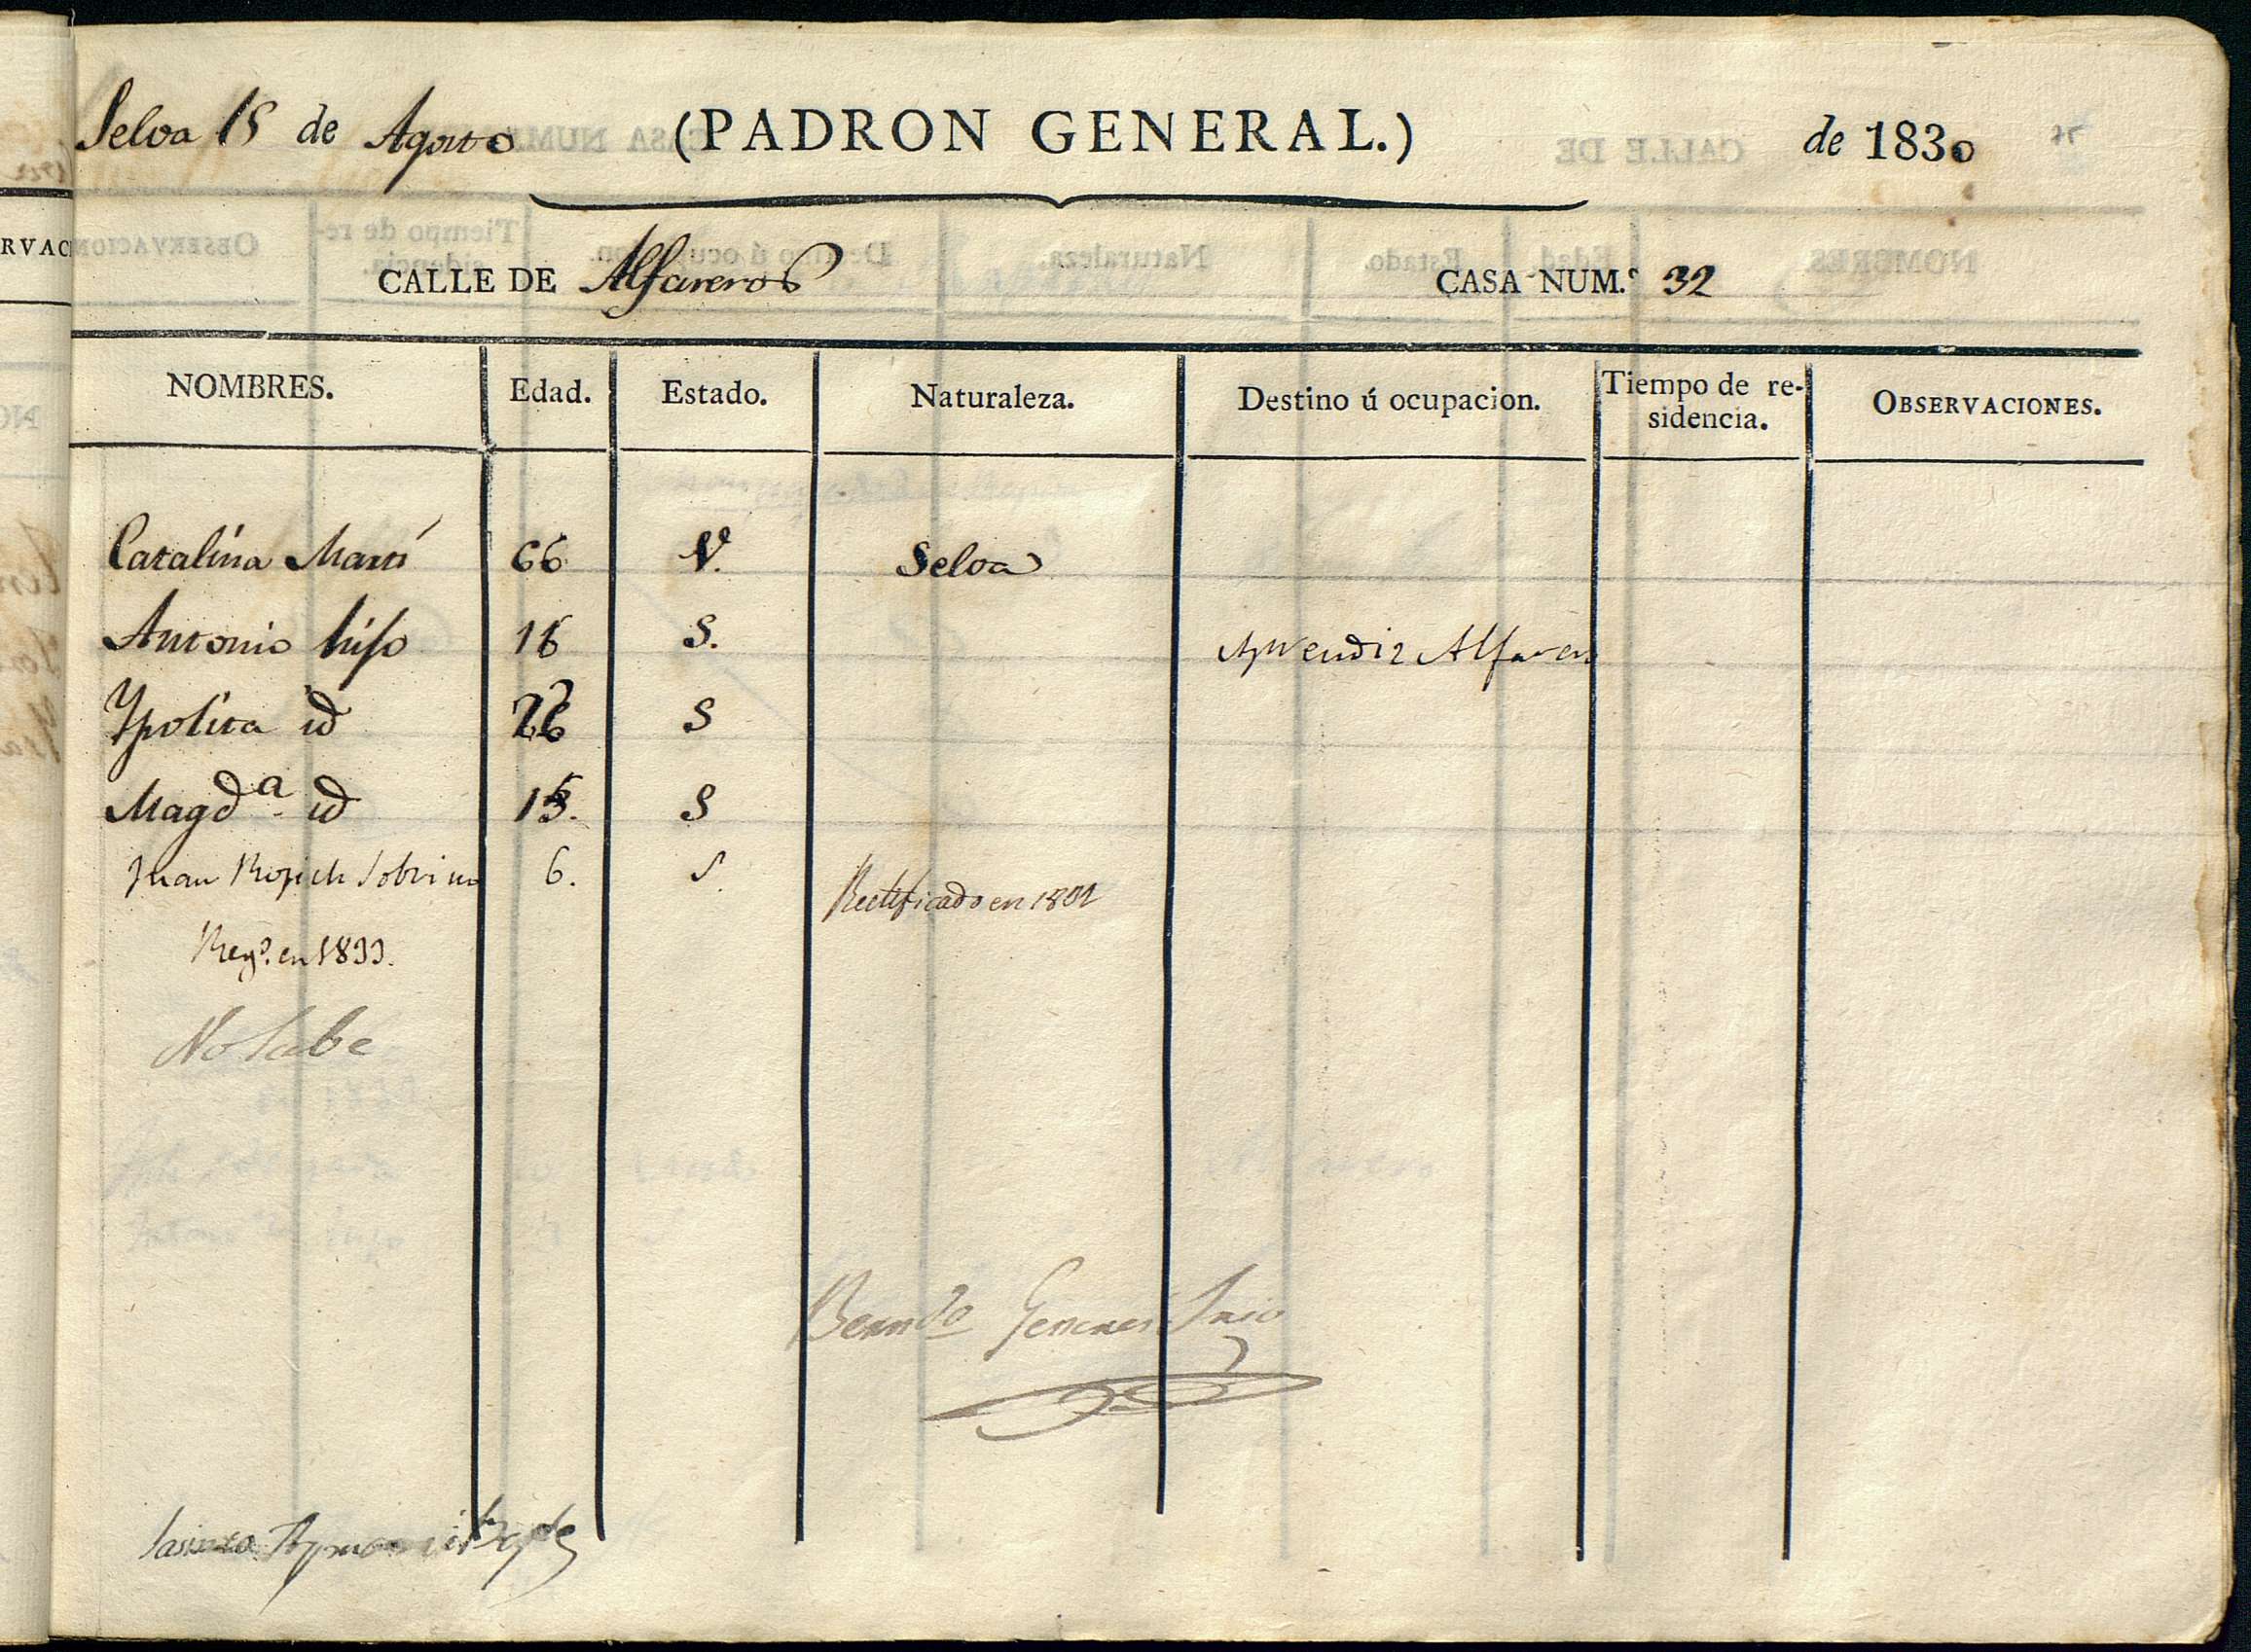 Selva 15 de Agosto (PADRON GENERAL.) de 1830
CALLE DE Alfareros CASA NUM.º 32
NOMBRES. Edad. Estado. Naturaleza. Destino ú ocupacion. Tiempo de re-sidencia. OBSERVACIONES.
Catalina Martí 66 V. Selva
Antonio hijo 16 S. Aprendiz Alfarero
Ypolita id S
Magd.a id S
Juan Sobrino 6. S.
Rectificado en
Reg.º en 1833.
No Sabe
Srio